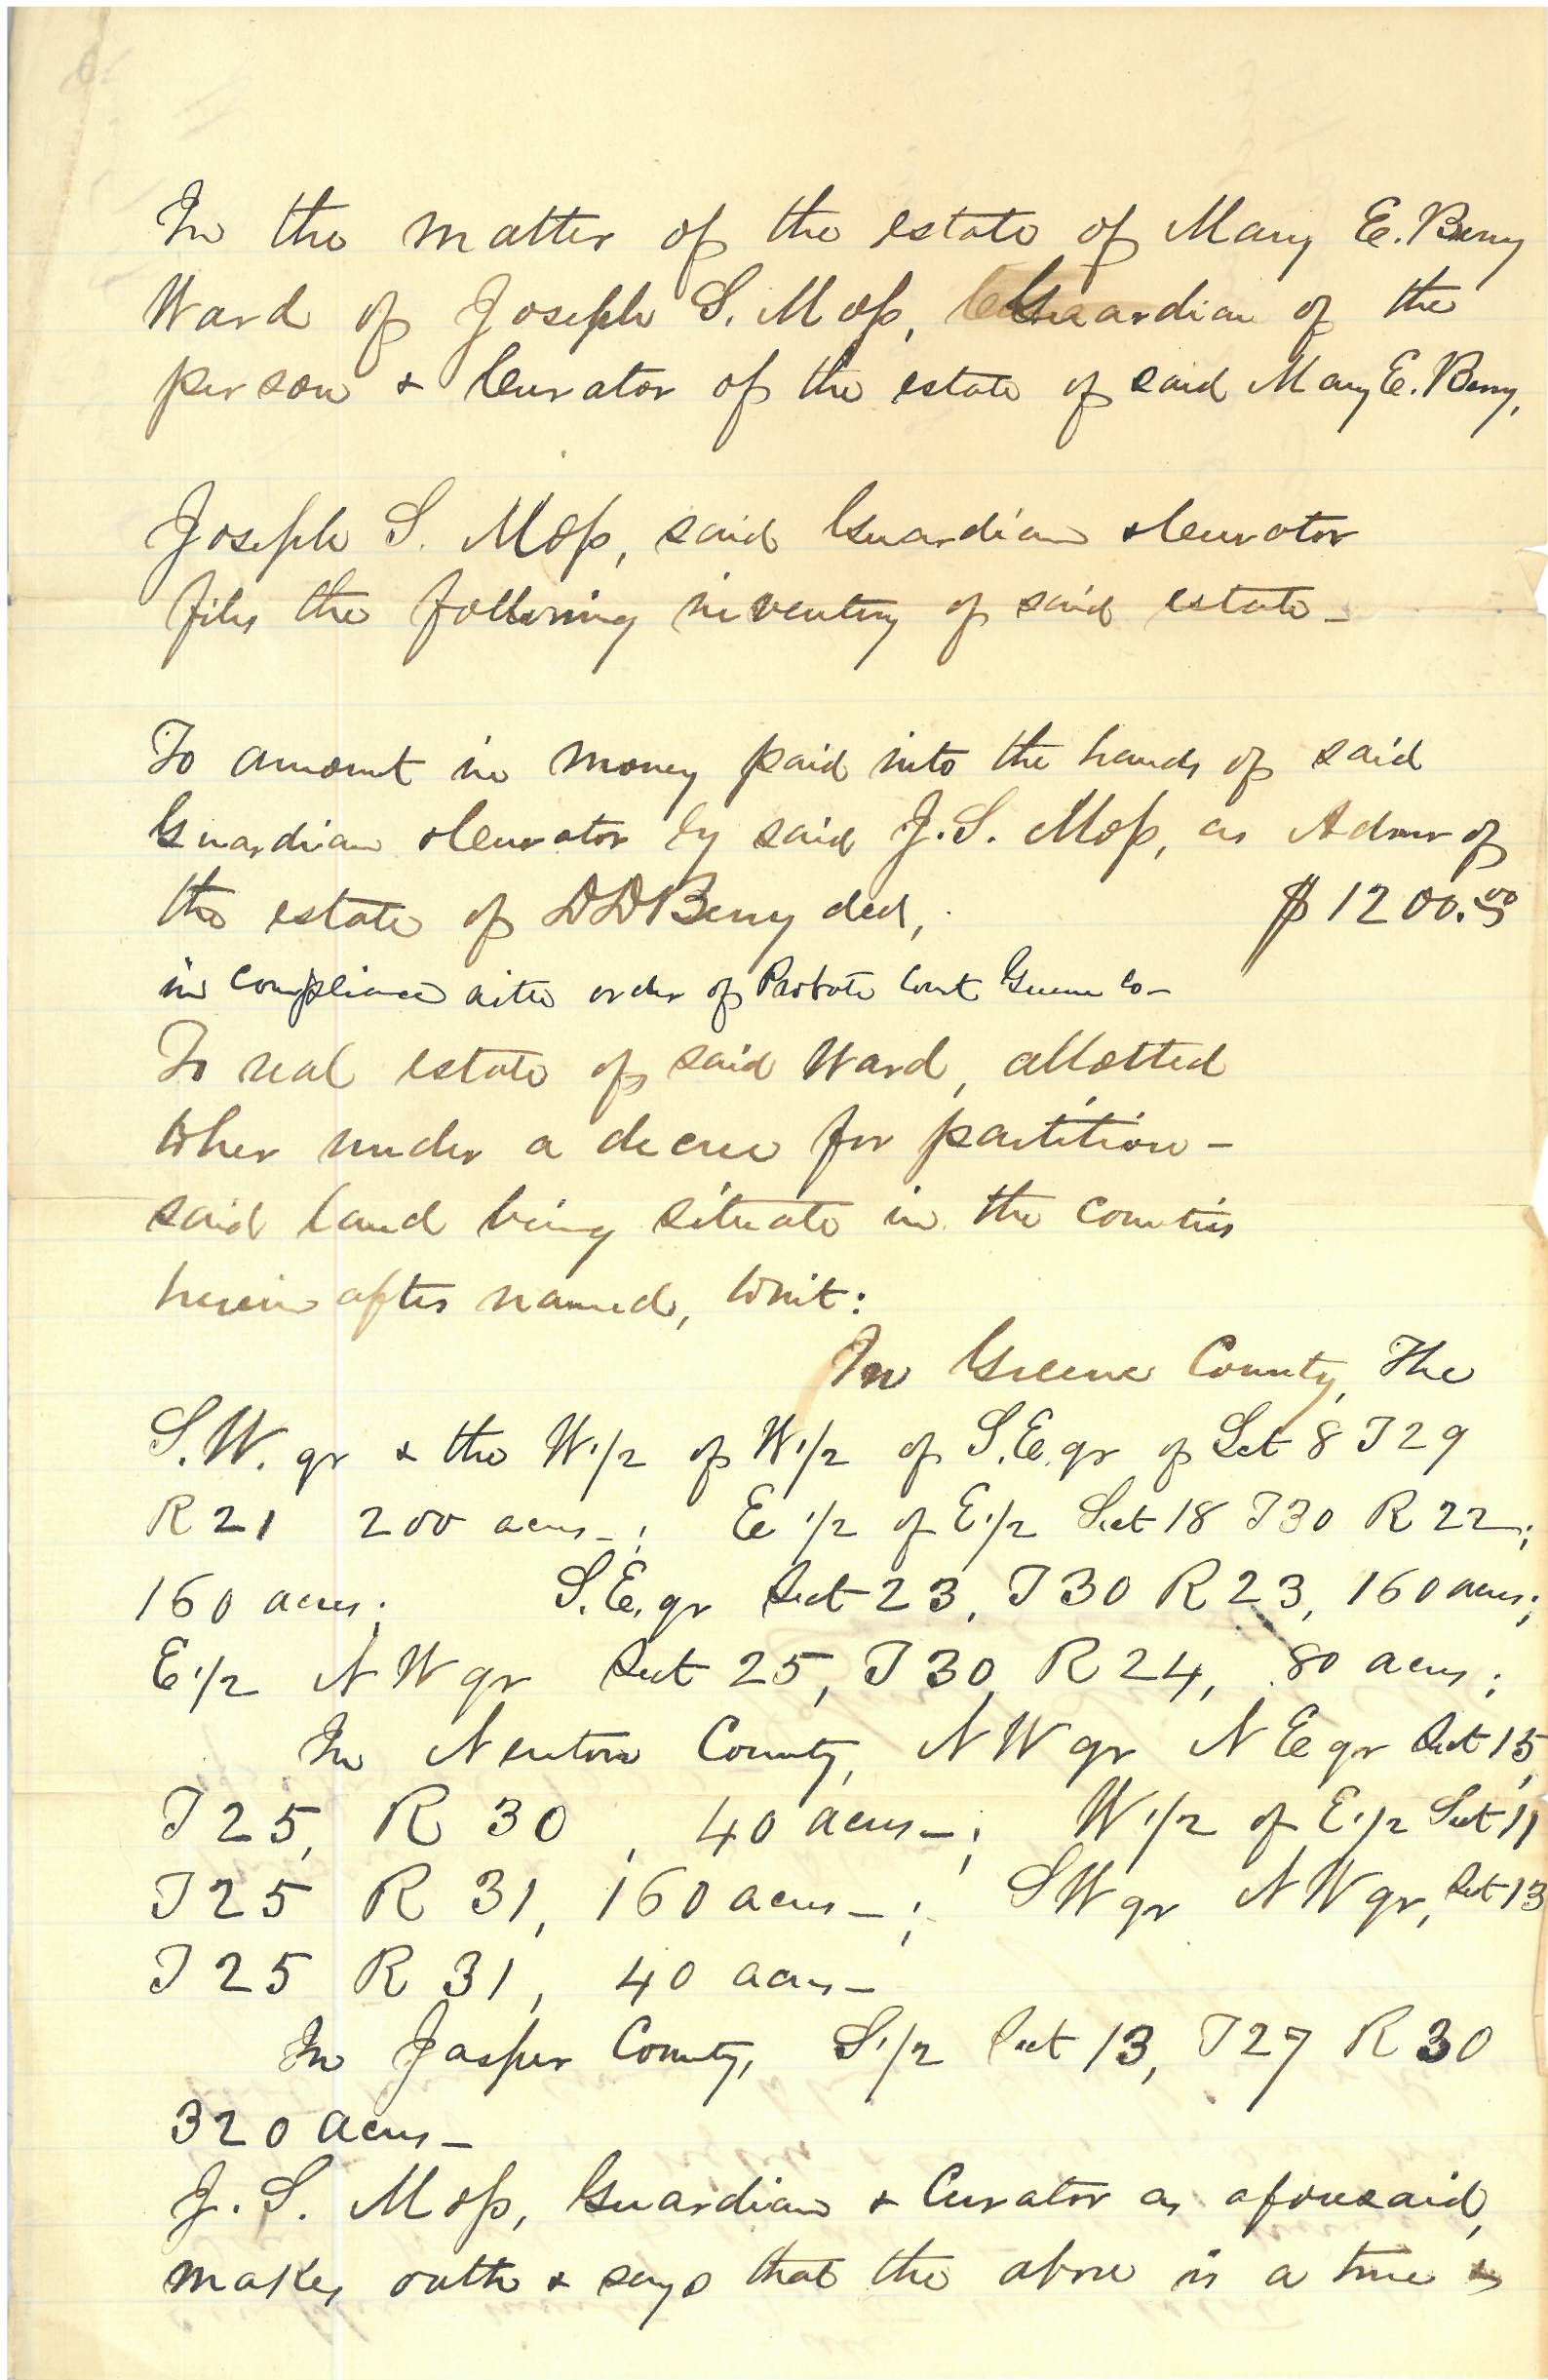 In the matter of the estate of Mary E. Berry
Ward of Joseph S. Moss, Guardian of the
person & Curator of the estate of said Mary E. Berry,
Joseph S. Moss, said Guardian & Curator
files the following inventory of said estate –
To amount in money paid into the hands of said
Guardian & Curator by said J. S. Moss, as Admr of
the estate of D D Berry decd, $1200.00
in compliance with order of Probate Court Greene Co –
To real estate of said Ward, allotted
to her under a decree for partition –
said land being situate in the counties
herein after named, towit:
In Greene County, The
S.W. qr & the W 1/2 of W 1/2 of S.E. qr of Sect 8 T29
R21 200 acres – ; E 1/2 of E 1/2 Sect 18 T30 R 22;
160 acres; S.E. qr Sect 23, T30 R 23, 160 acres;
E 1/2 N W qr Sect 25, T30, R 24, 80 acres;
In Newton County, N W qr N E qr Sect 15,
T25, R 30, 40 acres – ; W 1/2 of E 1/2 Sect 11
T25 R 31, 160 acres – ; S W qr N W qr, Sect 13
T25 R 31, 40 acres –
In Jasper County, S 1/2 Sect 13, T27 R 30
320 acres –
J. S. Moss, Guardian & Curator as aforesaid,
makes oath & says that the above is a true &